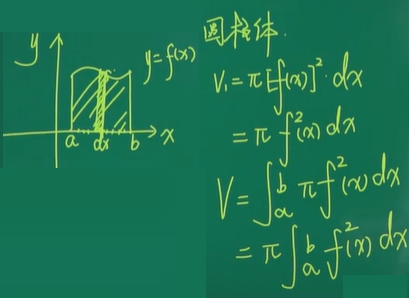 y
y=f(x)
a dx b x
圆柱体.
V₁=π[f(x)]²·dx
=πf²(x)dx
V=∫ₐᵇπf²(x)dx
=π∫ₐᵇf²(x)dx